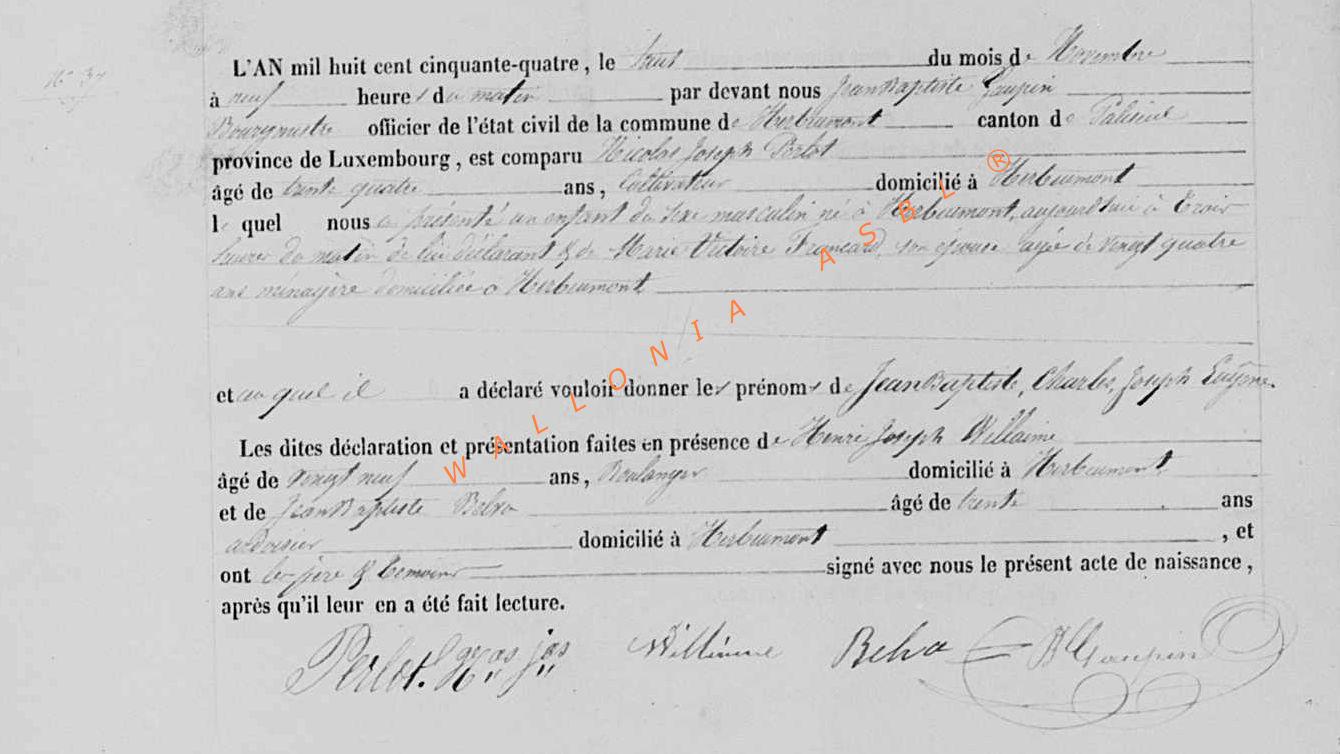 N° 37
L'AN mil huit cent cinquante-quatre, le huit du mois de Novembre
à neuf heures du matin par devant nous Jean Baptiste Gaupin
Bourgmestre officier de l'état civil de la commune de Herbeumont canton de Paliseul
province de Luxembourg, est comparu Nicolas Joseph Perlot
âgé de trente quatre ans, Cultivateur domicilié à Herbeumont
lequel nous a présenté un enfant du sexe masculin né à Herbeumont, aujourd'hui à Trois
heures du matin de lui déclarant & de Marie Victoire Francard, son épouse agée de vingt quatre
ans ménagère domiciliée à Herbeumont
et au quel il a déclaré vouloir donner les prénoms de Jean Baptiste, Charles, Joseph Eugène.
Les dites déclaration et présentation faites en présence de Henri Joseph Willaime
âgé de vingt neuf ans, Boulanger domicilié à Herbeumont
et de Jean Baptiste Belva âgé de trente ans
ardoisier domicilié à Herbeumont, et
ont les père & témoins signé avec nous le présent acte de naissance,
après qu'il leur en a été fait lecture.
Perlot. Willaime Belva JB Gaupin
WALLONIA ASBL ®